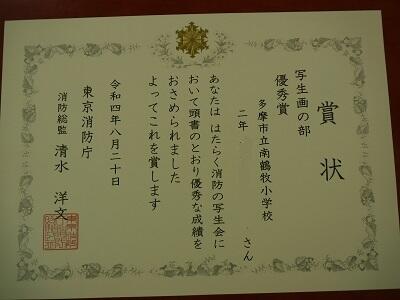 賞状
写生画の部
優秀賞
多摩市立南鶴牧小学校
二年 さん
あなたは はたらく消防の写生会に
おいて頭書のとおり優秀な成績を
おさめられました
よってこれを賞します
令和四年八月二十日
東京消防庁
消防総監 清水 洋文